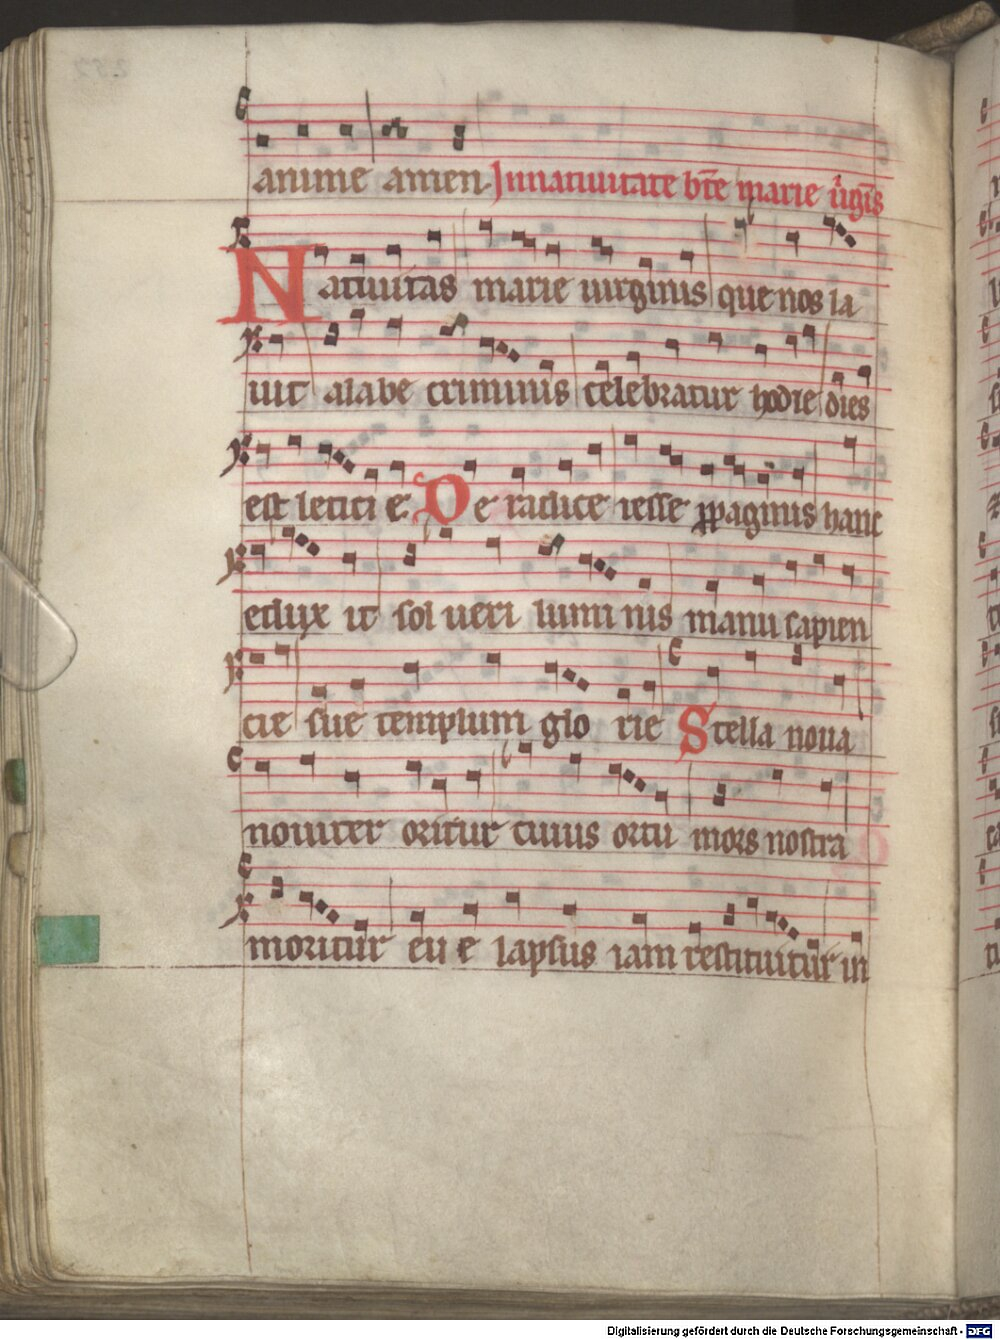 anime amen. Innatiuitate bte marie uĩgĩs
Natiuitas marie uirginis que nos la
uit alabe criminis celebratur hodie dies
est leticie. De radice iesse ꝓpaginis hanc
edux it sol ueri luminis manu sapien
cie sue templum glo rie Stella noua
nouiter oritur cuius ortu mors nostra
moritur eu e lapsus iam restituitur in
Digitalisierung gefördert durch die Deutsche Forschungsgemeinschaft - DFG